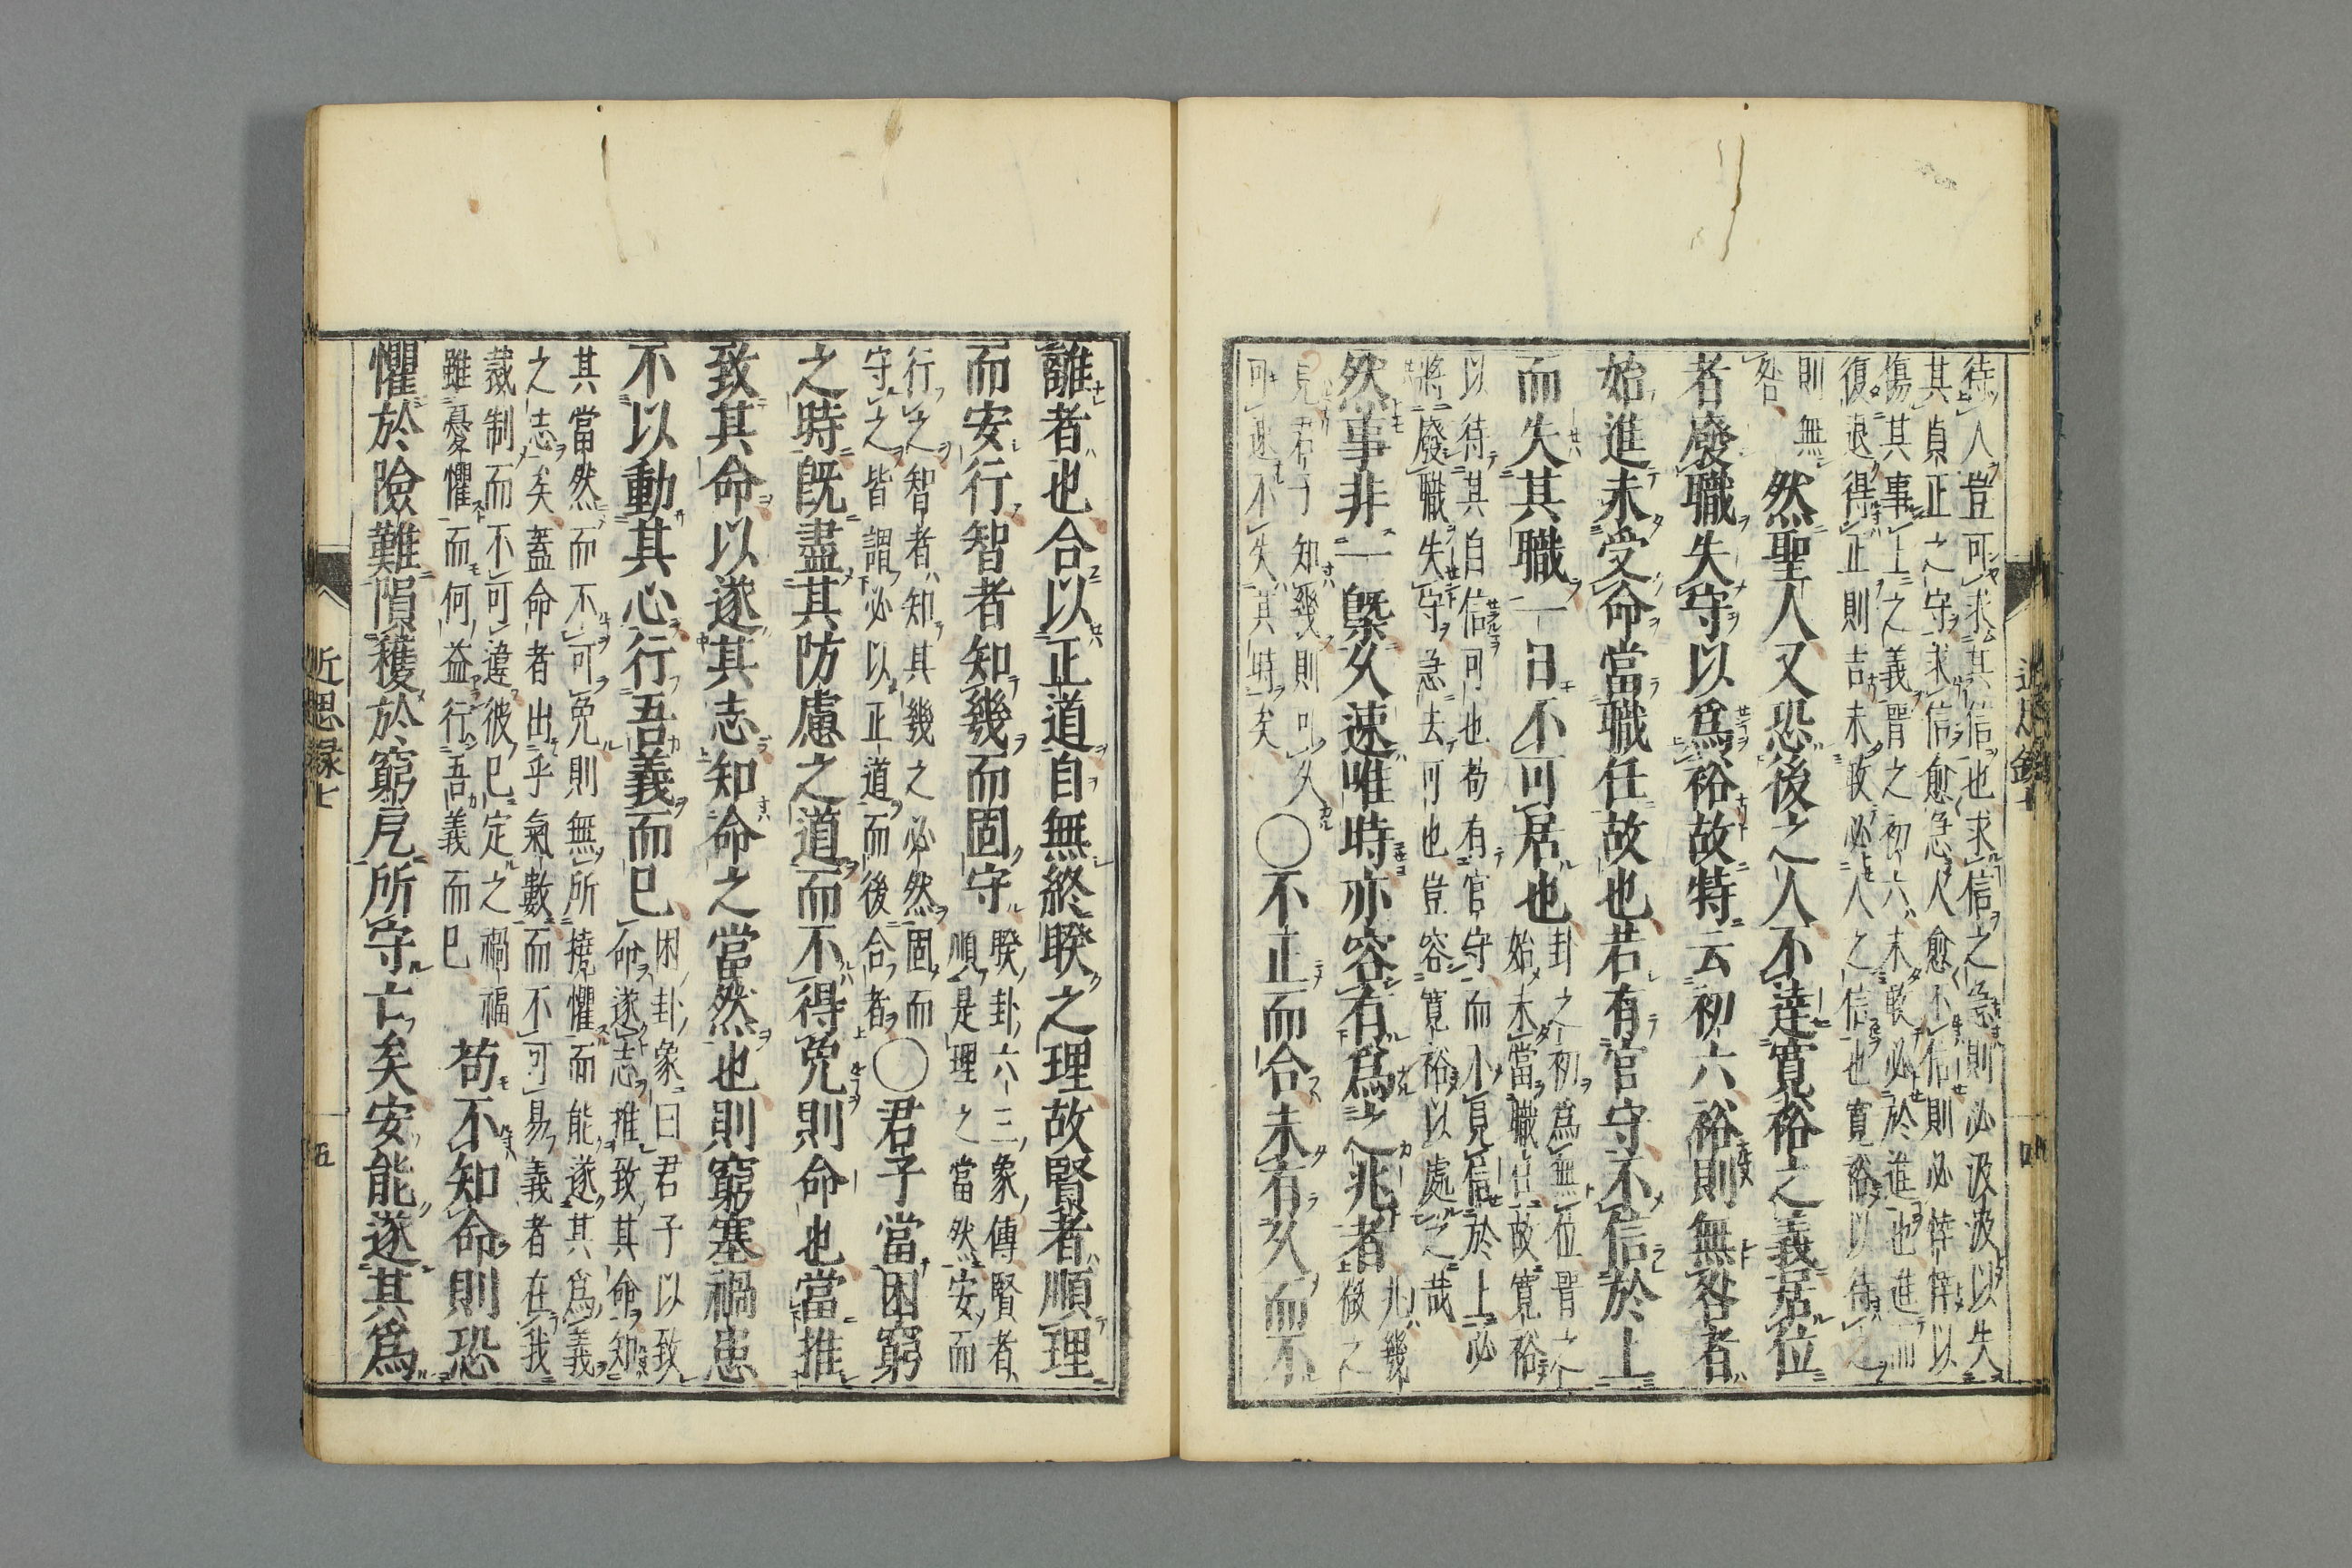 待人豈可求其信也求信之急則必汲汲以失
其貞正之守求信愈急人愈不信則必悻悻以
傷其事上之義晋之初六未敢必於進也進而
復退得正則吉未敢必人之信也寛裕以待之
則無
咎
然聖人又恐後之人不達寛裕之義居位
者廢職失守以爲裕故特云初六裕則無咎者
始進未受命當職任故也若有官守不信於上
而失其職一日不可居也
卦之初爲無位晋之
始未當職任故寛裕
以待其自信可也苟有官守而不見信於上必
將廢職失守急去可也豈容寛裕以處之哉
然事非一槩久速唯時亦容有爲之兆者
兆幾
微之
見君子知幾則可久
可速不失其時矣
○不正而合未有久而不
離者也合以正道自無終睽之理故賢者順理
而安行智者知幾而固守
睽卦六三象傳賢者
順是理之當然安而
行之智者知其幾之必然固而
守之皆謂必以正道而後合者
○君子當困窮
之時既盡其防慮之道而不得免則命也當推
致其命以遂其志知命之當然也則窮塞禍患
不以動其心行吾義而已
困卦象曰君子以致
命遂志推致其命知
其當然而不可免則無所撓懼而能遂其爲義
之志矣蓋命者出乎氣數而不可易義者在我
裁制而不可違彼已定之禍福
雖憂懼而何益行吾義而已
苟不知命則恐
懼於險難隕穫於窮戹所守亡矣安能遂其爲
近思録七
五